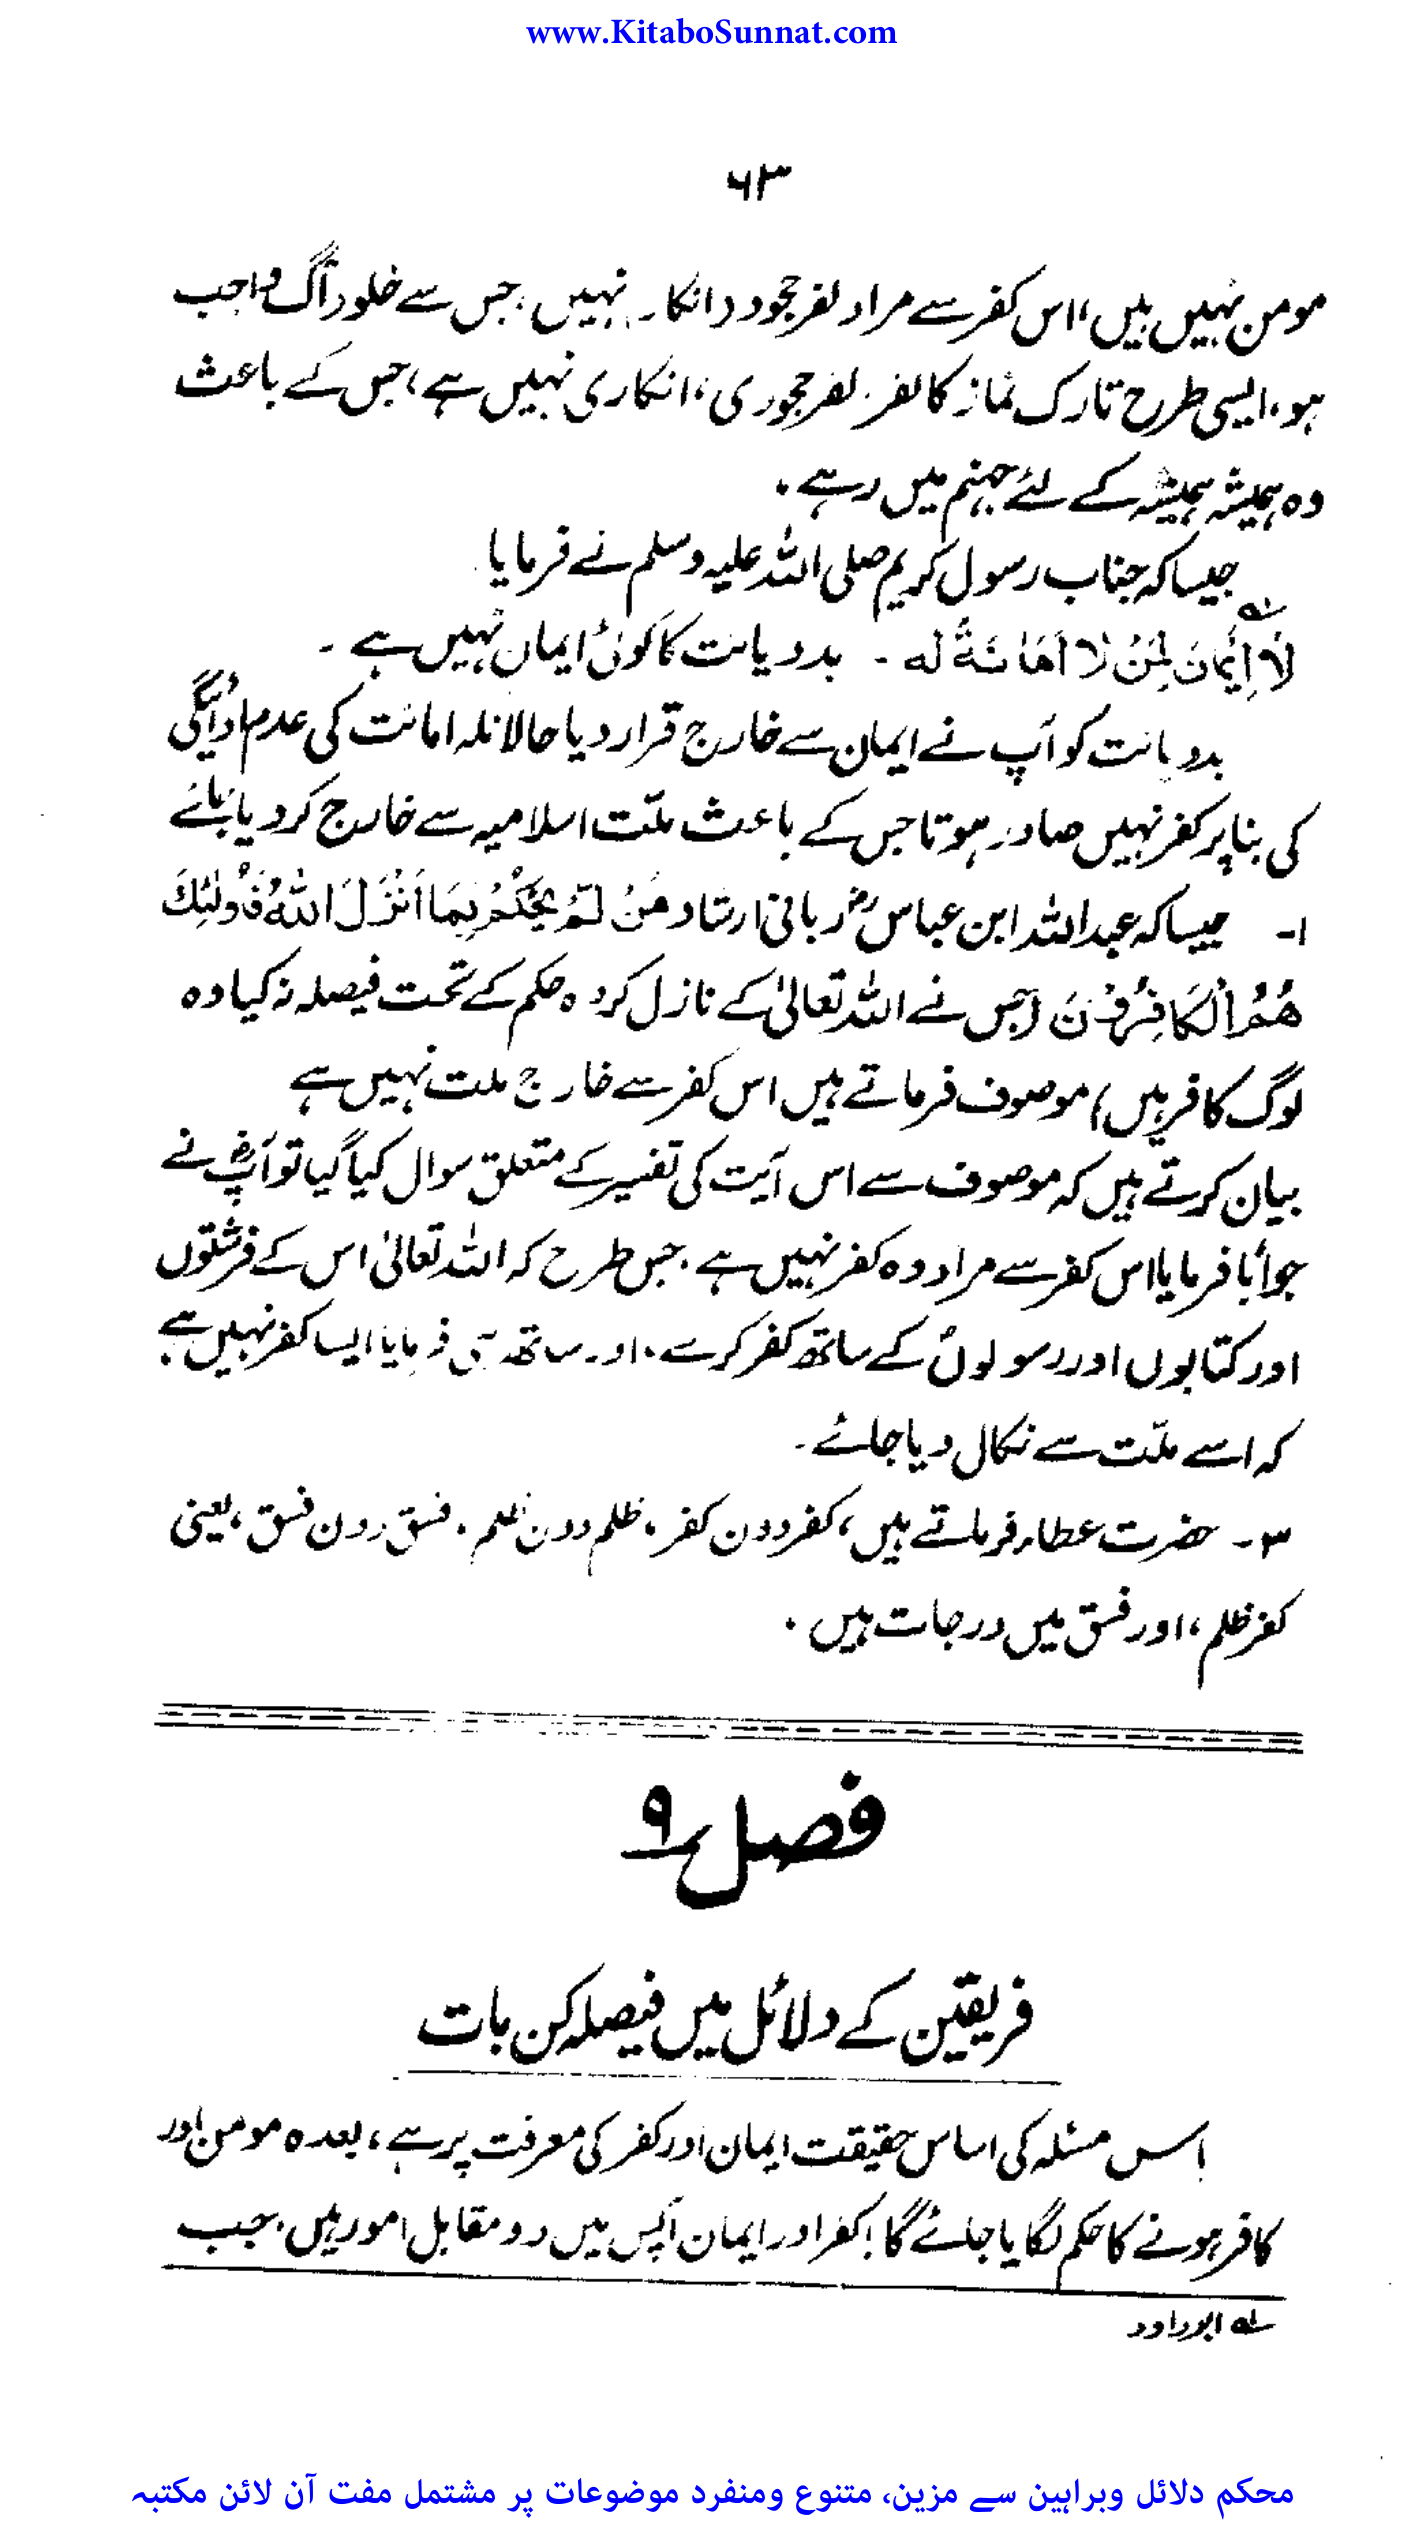 www.KitaboSunnat.com
۶۳
مومن نہیں ہیں، اس کفر سے مراد کفر جحود و انکار نہیں، جس سے خلود آگ واجب
ہو، ایسی طرح تارک نماز کا کفر، کفر جحودی، انکاری نہیں ہے، جس کے باعث
وہ ہمیشہ ہمیشہ کے لئے جہنم میں رہے۔
جیسا کہ جناب رسول کریم صلی اللہ علیہ وسلم نے فرمایا
لَا إِيْمَانَ لِمَنْ لَا أَمَانَةَ لَه ۔ بددیانت کا کوئی ایمان نہیں ہے ۔ لہ
بددیانت کو آپ نے ایمان سے خارج قرار دیا حالانکہ امانت کی عدم ادائیگی
کی بنا پر کفر نہیں صادر ہوتا جس کے باعث ملّت اسلامیہ سے خارج کر دیا جائے
۱۔ جیسا کہ عبداللہ ابن عباسؓ ربانی ارشاد مَنْ لَّمْ يَحْكُمْ بِمَا أَنْزَلَ اللهُ فَأُولٰئِكَ
هُمُ الْكَافِرُوْنَ (جس نے اللہ تعالیٰ کے نازل کردہ حکم کے تحت فیصلہ نہ کیا وہ
لوگ کافر ہیں) موصوف فرماتے ہیں اس کفر سے خارج ملت نہیں ہے
بیان کرتے ہیں کہ موصوف سے اس آیت کی تفسیر کے متعلق سوال کیا گیا تو آپؓ نے
جواباً فرمایا اس کفر سے مراد وہ کفر نہیں ہے۔ جس طرح کہ اللہ تعالیٰ اس کے فرشتوں
اور کتابوں اور رسولوں کے ساتھ کفر کرے، اور ساتھ ہی فرمایا ایسا کفر نہیں ہے
کہ اسے ملّت سے نکال دیا جائے۔
۳۔ حضرت عطاء فرماتے ہیں، کفر دون کفر، ظلم دون ظلم، فسق دون فسق، یعنی
کفر ظلم، اور فسق میں درجات ہیں۔
فصل ۹
فریقین کے دلائل میں فیصلہ کن بات
اس مسئلہ کی اساس حقیقت ایمان اور کفر کی معرفت پر ہے، بعدہ مومن اور
کافر ہونے کا حکم لگایا جائے گا! کفر اور ایمان آپس میں دو مقابل امور ہیں، جب
لہ ابوداود
محکم دلائل وبراہین سے مزین، متنوع ومنفرد موضوعات پر مشتمل مفت آن لائن مکتبہ